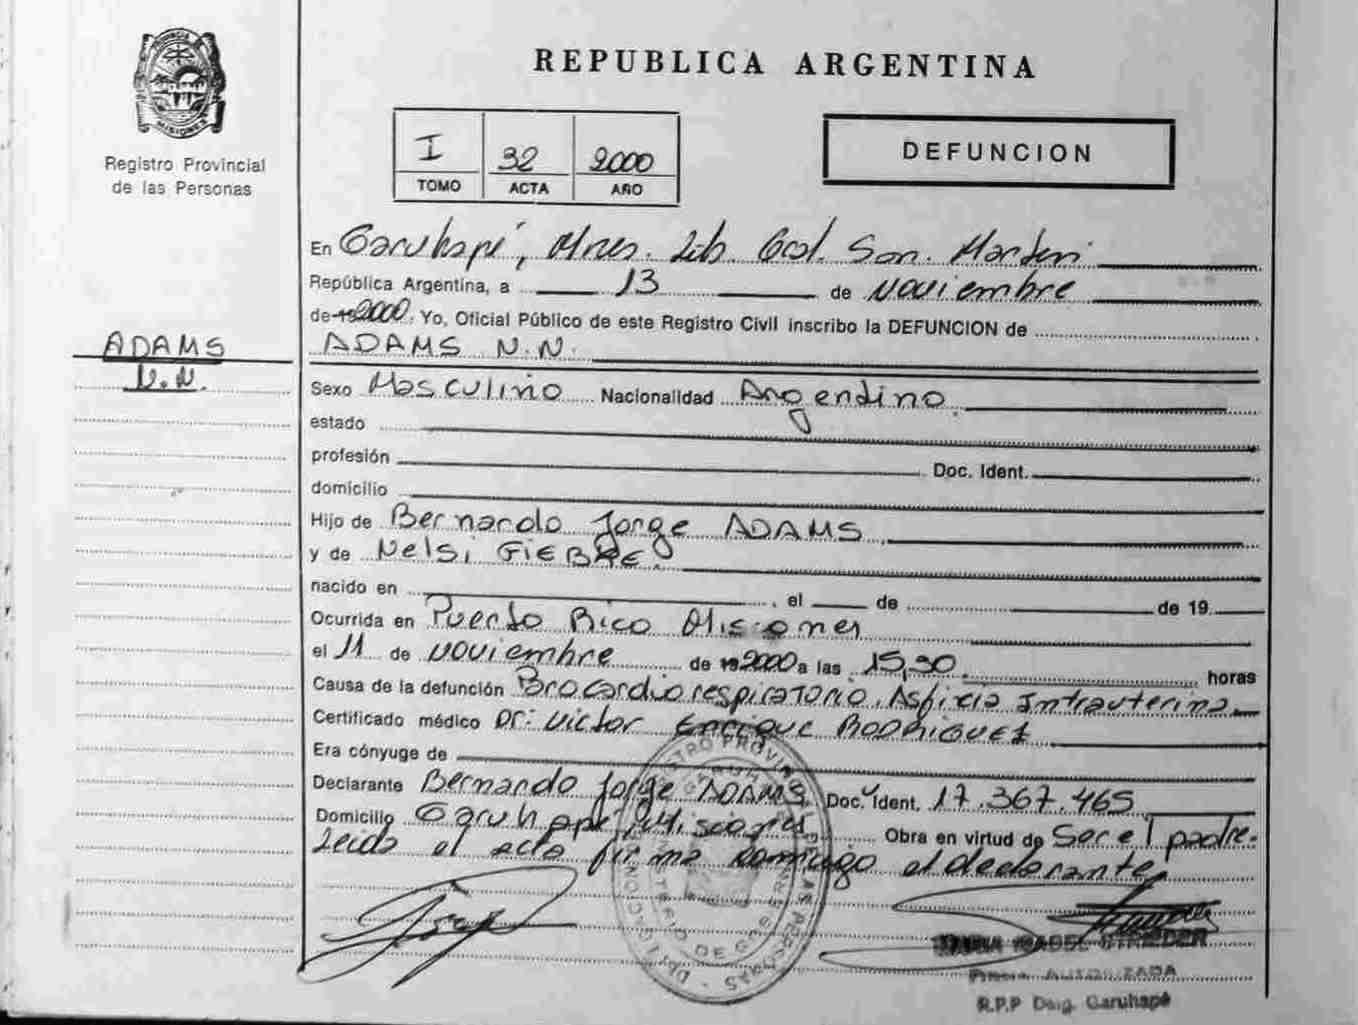 PROVINCIA DE
MISIONES
Registro Provincial
de las Personas
REPUBLICA ARGENTINA
I 32 2000
TOMO ACTA AÑO
DEFUNCION
En Garuhapé, Mnes. Lib. Gral. San. Martin
República Argentina, a 13 de Noviembre
de 19 2000. Yo, Oficial Público de este Registro Civil inscribo la DEFUNCION de
ADAMS N.N.
ADAMS
N.N.
Sexo Masculino Nacionalidad Argentino
estado
profesión Doc. Ident.
domicilio
Hijo de Bernardo Jorge ADAMS
y de Nelsi GIEBRE.
nacido en , el de de 19
Ocurrida en Puerto Rico Misiones
el 11 de Noviembre de 19 2000 a las 15,30 horas
Causa de la defunción Brocardiorespiratorio. Asfixia Intrauterina.
Certificado médico Dr: Victor Enrique RODRIGUEZ
Era cónyuge de
Declarante Bernardo Jorge ADAMS Doc. Ident. 17.367.465
Domicilio Garuhapé Misiones Obra en virtud de Ser el padre.
Leida el acta firma conmigo el declarante
MINISTERIO DE GOB
PERSONAS
R.P.P Dlg. Garuhapé